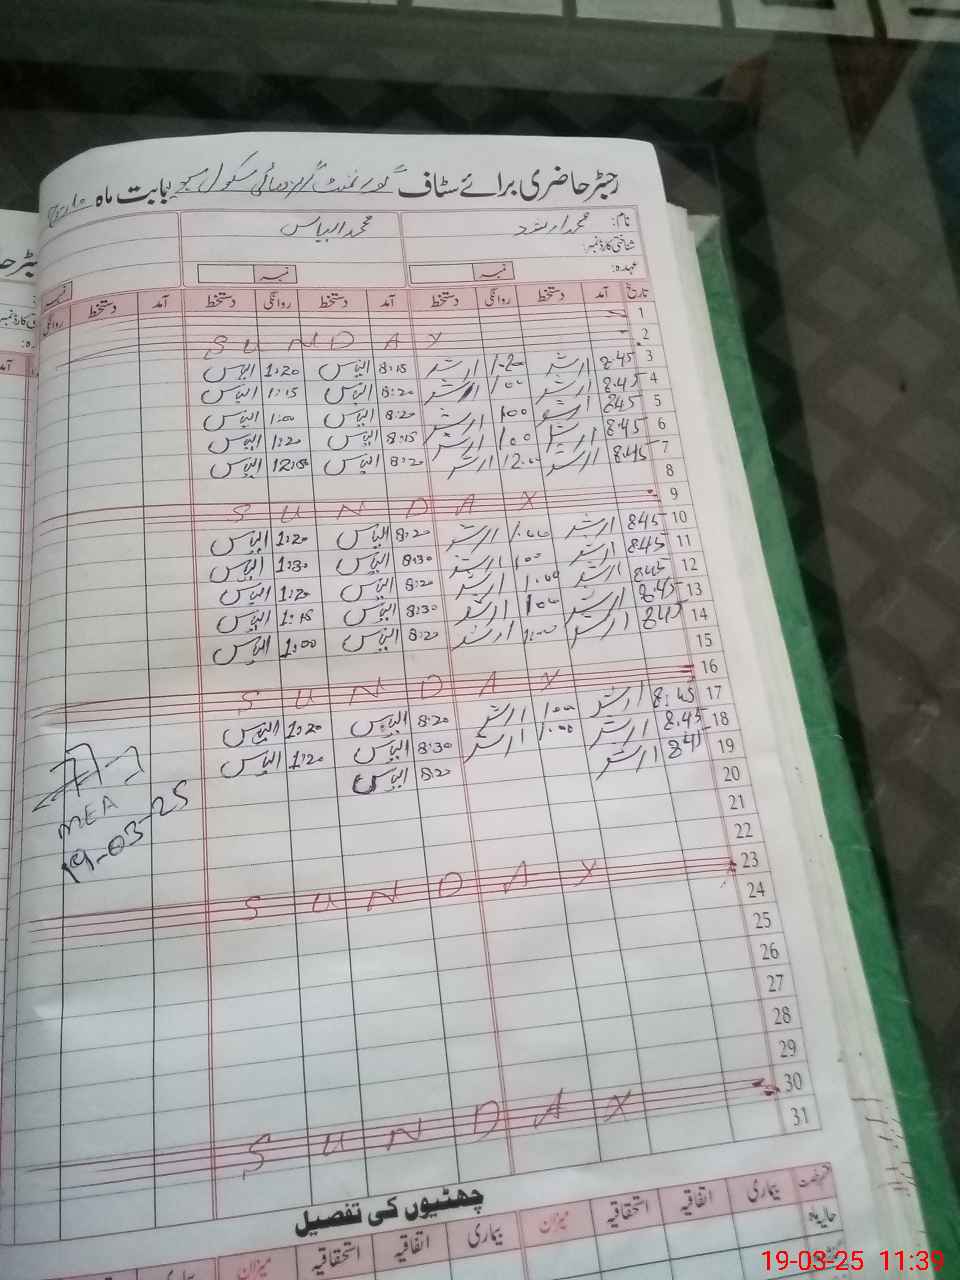 رجسٹر حاضری برائے سٹاف گورنمنٹ گرلز ہائی سکول بابت ماہ مارچ
نام: محمد ارشد محمد الیاس
شناختی کارڈ نمبر:
عہدہ: نمبر نمبر نمبر
تاریخ آمد دستخط روانگی دستخط آمد دستخط روانگی دستخط آمد دستخط روانگی
1
2 SUNDAY
3 8.45 ارشد 1.20 ارشد 8:15 الیاس 1:20 الیاس
4 8.45 ارشد 1.00 ارشد 8:20 الیاس 1:15 الیاس
5 8.45 ارشد 1.00 ارشد 8:20 الیاس 1:00 الیاس
6 8.45 ارشد 1.00 ارشد 8:15 الیاس 1:20 الیاس
7 8.45 ارشد 12.00 ارشد 8:20 الیاس الیاس
8
9 SUNDAY
10 8.45 ارشد 1.00 ارشد 8:20 الیاس 1:20 الیاس
11 8.45 ارشد 1.00 ارشد 8:30 الیاس 1:30 الیاس
12 8.45 ارشد 1.00 ارشد 8:20 الیاس 1:20 الیاس
13 8.45 ارشد 1.00 ارشد 8:30 الیاس 1:15 الیاس
14 8.45 ارشد 1.00 ارشد 8:20 الیاس 1:00 الیاس
15
16 SUNDAY
17 8.45 ارشد 1.00 ارشد 8:20 الیاس 1:20 الیاس
18 8.45 ارشد 1.00 ارشد 8:30 الیاس 1:20 الیاس
19 8.45 ارشد 8:20 الیاس
20
MEA
19-03-25
21
22
23 SUNDAY
24
25
26
27
28
29
30 SUNDAY
31
چھٹیوں کی تفصیل
بیماری اتفاقیہ استحقاقیہ میزان بیماری اتفاقیہ استحقاقیہ میزان
حالیہ ماہ
19-03-25 11:39